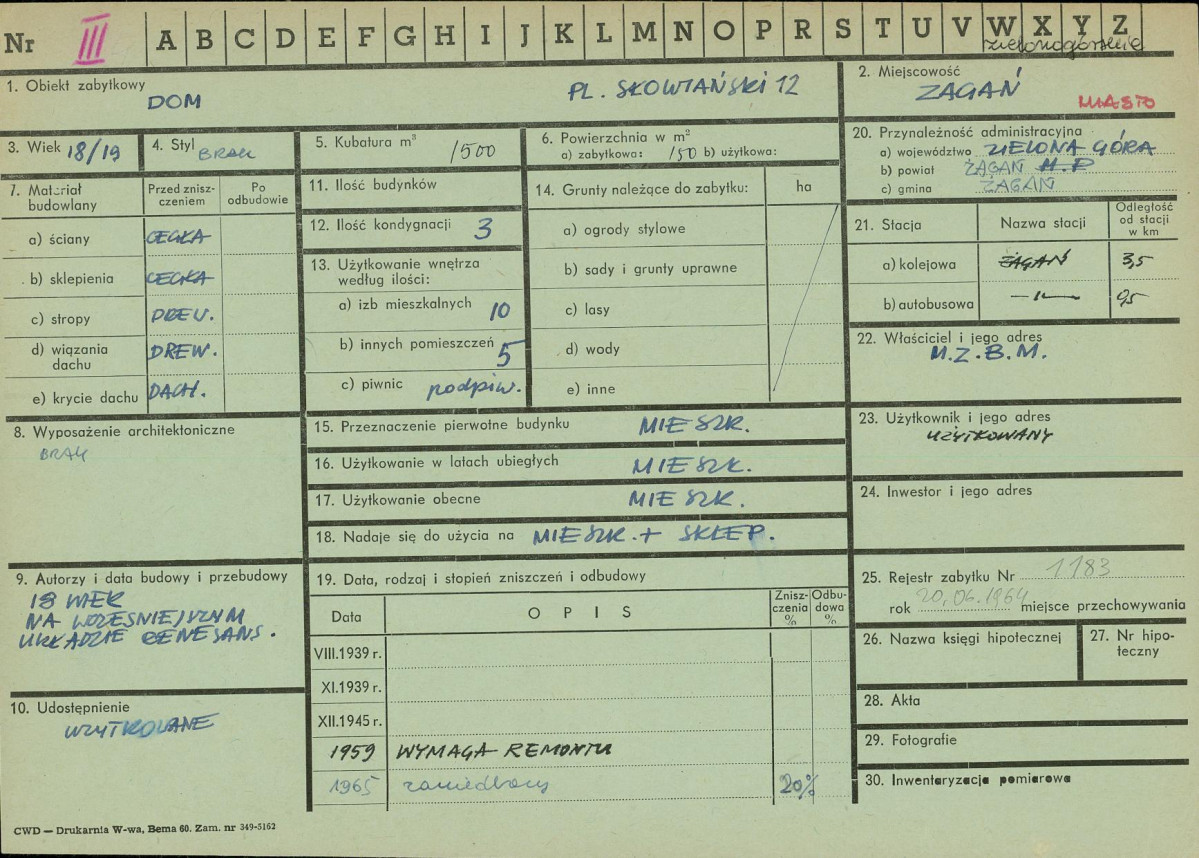 Nr III A B C D E F G H I J K L M N O P R S T U V W X Y Z
zielonogórskie
1. Obiekt zabytkowy
DOM
PL. SŁOWIAŃSKI 12
2. Miejscowość
ŻAGAŃ
MIASTO
3. Wiek 18/19
4. Styl BRAK
5. Kubatura m³ 1500
6. Powierzchnia w m²
a) zabytkowa: 150 b) użytkowa:
20. Przynależność administracyjna
a) województwo ZIELONA GÓRA
b) powiat ŻAGAŃ M.P
c) gmina ŻAGAŃ
7. Materiał budowlany
Przed zniszczeniem
Po odbudowie
a) ściany CEGŁA
b) sklepienia CEGŁA
c) stropy DREW.
d) wiązania dachu DREW.
e) krycie dachu DACH.
11. Ilość budynków
12. Ilość kondygnacji 3
13. Użytkowanie wnętrza
według ilości:
a) izb mieszkalnych 10
b) innych pomieszczeń 5
c) piwnic podpiw.
14. Grunty należące do zabytku: ha
a) ogrody stylowe
b) sady i grunty uprawne
c) lasy
d) wody
e) inne
21. Stacja
Nazwa stacji
Odległość od stacji w km
a) kolejowa ŻAGAŃ 3,5
b) autobusowa —"— 0,5
22. Właściciel i jego adres
M.Z.B.M.
8. Wyposażenie architektoniczne
BRAK
15. Przeznaczenie pierwotne budynku MIESZK.
16. Użytkowanie w latach ubiegłych MIESZK.
17. Użytkowanie obecne MIESZK.
18. Nadaje się do użycia na MIESZK. + SKLEP.
23. Użytkownik i jego adres
UŻYTKOWANY
24. Inwestor i jego adres
9. Autorzy i data budowy i przebudowy
18 WIEK
NA WCZEŚNIEJSZYM
UKŁADZIE RENESANS.
19. Data, rodzaj i stopień zniszczeń i odbudowy
Data
O P I S
Zniszczenia %
Odbudowa %
VIII.1939 r.
XI.1939 r.
XII.1945 r.
1959 WYMAGA REMONTU
1965 zaniedbany 20%
25. Rejestr zabytku Nr 1183
rok 20.06.1964 miejsce przechowywania
26. Nazwa księgi hipotecznej
27. Nr hipoteczny
28. Akta
29. Fotografie
30. Inwentaryzacja pomiarowa
10. Udostępnienie
UŻYTKOWANE
CWD — Drukarnia W-wa, Bema 60. Zam. nr 349-5162